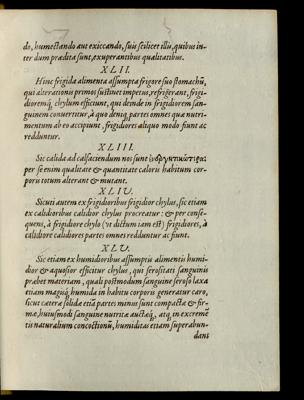 do, humectando aut exiccando, suis scilicet illis, quibus in
ter dum prædita sunt, exuperantibus qualitatibus.
XLII.
Hinc frigida alimenta assumpta frigore suo stomachũ,
qui alterationis primos sustinet impetus, refrigerant, frigi
dioremq́; chylum efficiunt, qui deinde in frigidiorem san
guinem conuertitur, à quo deniq; partes omnes quæ nutri-
mentum ab eo accipiunt, frigidiores aliquo modo fiunt ac
redduntur.
XLIII.
Sic calida ad calfaciendum nos sunt
per se enim qualitate & quantitate caloris habitum cor-
poris totum alterant & mutant.
XLIV.
Sicuti autem ex frigidioribus frigidior chylus, sic etiam
ex calidioribus calidior chylus procreatur: & per conse-
quens, à frigidiore chylo (vt dictum iam est) frigidiores, à
calidiore calidiores partes omnes redduntur ac fiunt.
XLV.
Sic etiam ex humidioribus assumptis alimentis humi-
dior & aquosior efficitur chylus, qui serositati sanguinis
præbet materiam, quali postmodum sanguine seroso laxa
etiam magisq́; humida in habitu corporis generatur caro,
sicut cæteræ solidæ etiã partes minus sunt compactæ & fir-
mæ, huiusmodi sanguine nutritæ auctæq́;, atq; in excremẽ
tis naturalium concoctionũ, humiditas etiam superabun-
dans